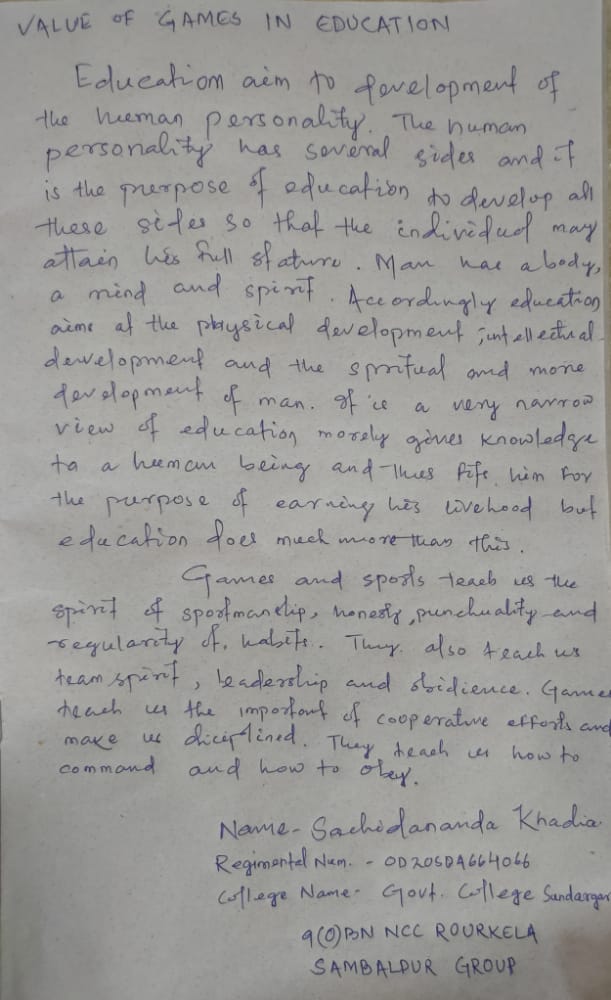 VALUE OF GAMES IN EDUCATION
Education aim to development of
the human personality. The human
personality has several sides and it
is the purpose of education to develop all
these sides so that the individual may
attain his full stature. Man has a body,
a mind and spirit. Accordingly education
aims at the physical development, intellectual
development and the spritual and more
development of man. It is a very narrow
view of education morely gives knowledge
to a human being and thus fits him for
the purpose of earning his livehood but
education does much more than this.
Games and sports teach us the
spirit of sportmanship, honesty, punchuality and
regularity of habits. They also teach us
team spirit, leadership and obidience. Games
teach us the important of cooperative efforts and
make us diciplined. They teach us how to
command and how to obey.
Name- Sachidananda Khadia
Regimental Num. - OD20SDA664066
College Name- Govt. College Sundargar
9(O)BN NCC ROURKELA
SAMBALPUR GROUP